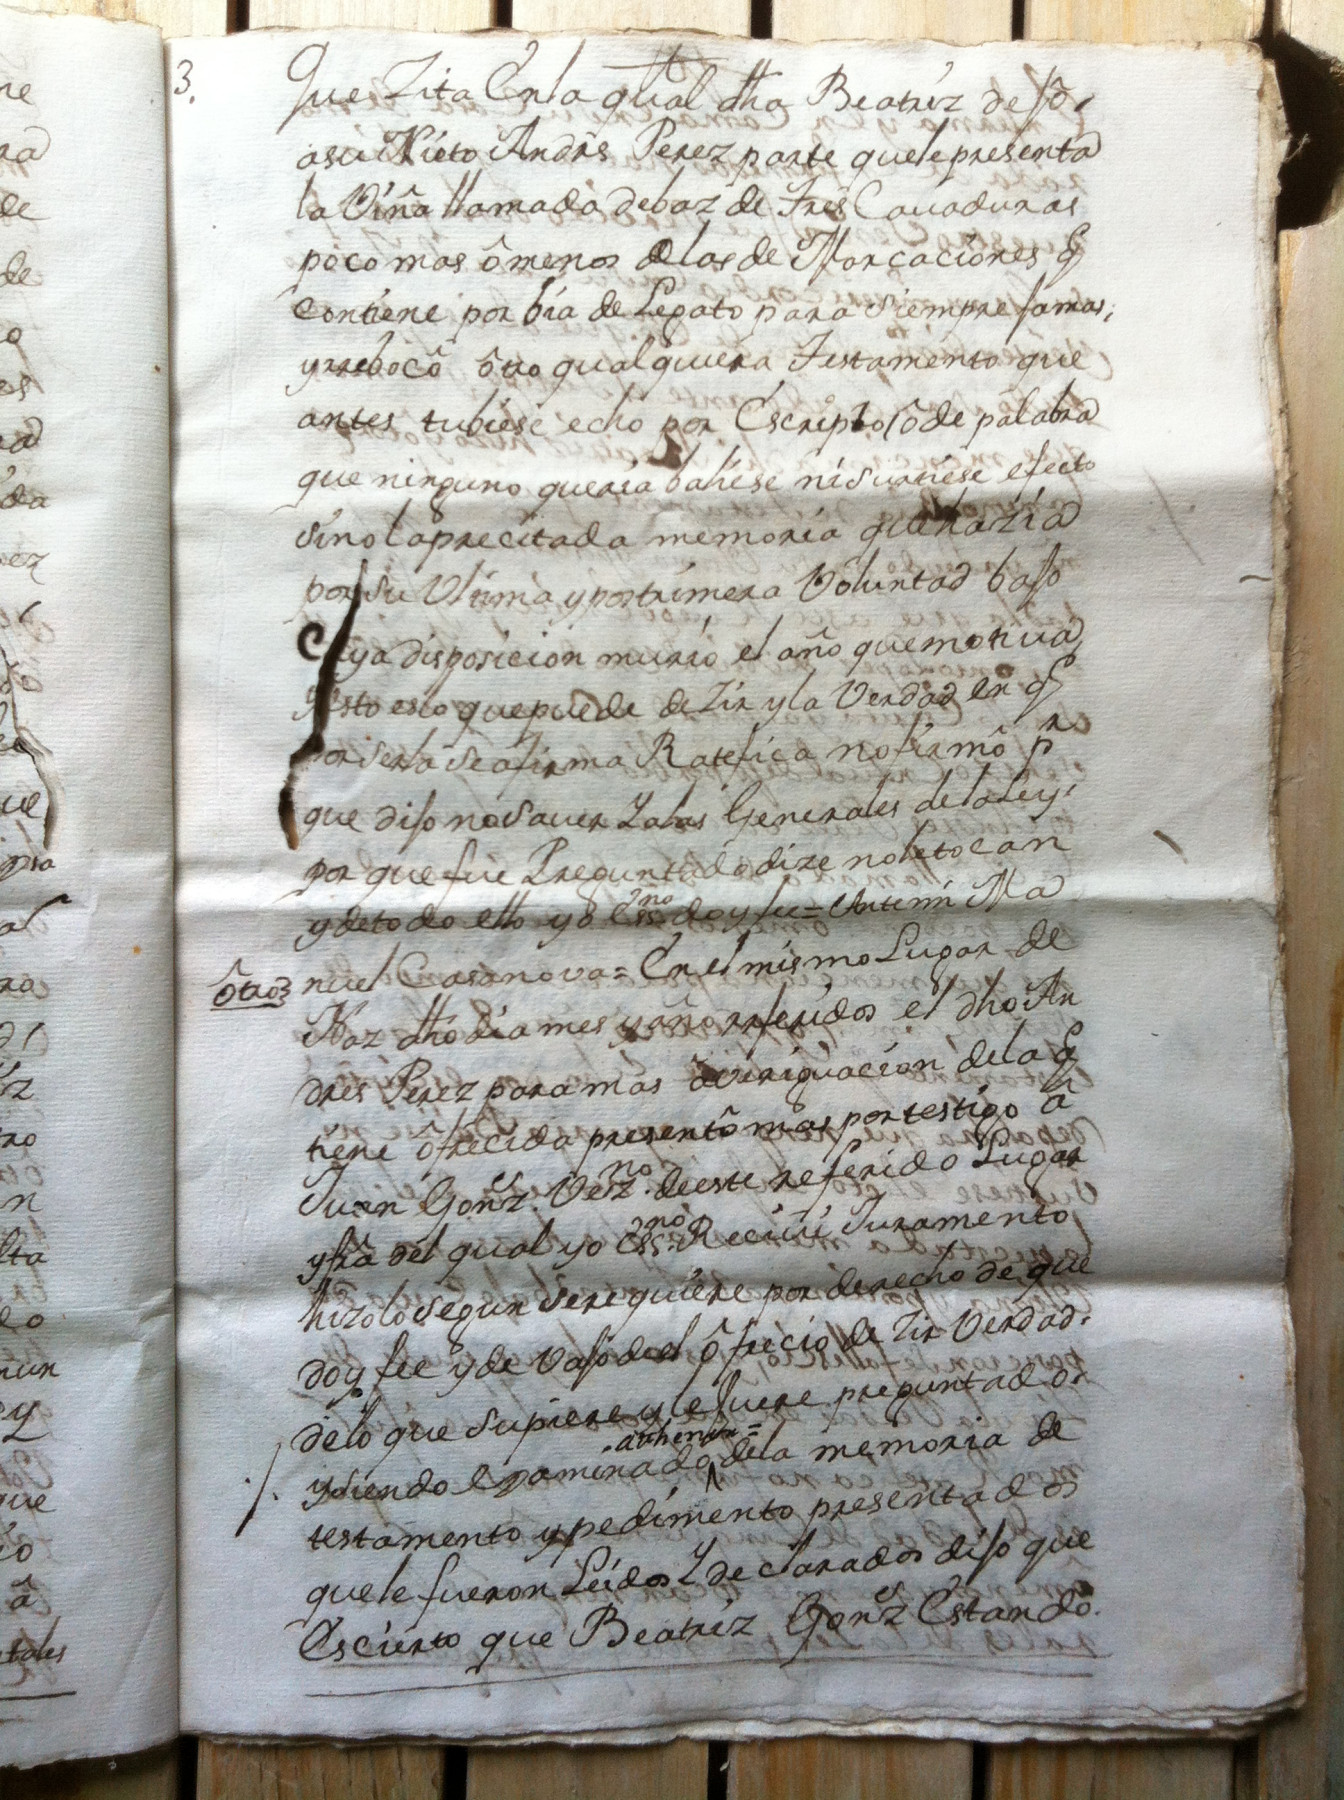 3.
Que Zita En la qual dha Beatriz desô,
asu Nieto Andrs Perez parte quele presenta
la Viña llamada debaz de Tres Cauaduras
poco mas ô menos delas de Marcaciones q
contiene por bia de Legato para siempre Jamas,
yrrebocô ôtro qualquiera Testamento que
antes tubiese echo por Escripto, ô de palabra
que ninguno queria baliese ni surtiese efecto
sino la precitada memoria que hazia
por su Ultima y postrimera Voluntad bajo
Cuya disposicion murio el año que motiua
y esto es lo que puede deZir y la Verdad en q
por serla se afirma Ratefica no firmô pr
que dijo no Sauer Y alas Generales dela Ley,
por que fue Preguntado dize no le tocan
y de todo ello yo Essno doy fee = Antemi Ma
nuel Casanova = En el mismo Lugar de
ôtro
Naz dho dia mes y año rreferidos el dho An
dres Perez para mas averiguacion dela q
tiene ôfrecida presentô mas por testigo â
Juan Gonzs. Vezno. de este referido Lugar
y fra del qual yo Essno Reciui Juramento
hizolo segun se requiere por derecho de que
doy fee y de Vajo del ôfrecio deZir Verdad,
delo que supiere y le fuere preguntado,
athenor =
y siendo examinado dela memoria de
testamento y pedimento presentados
que le fueron Leidos Y declarados dijo que
Es cierto que Beatriz Gonzs Estando